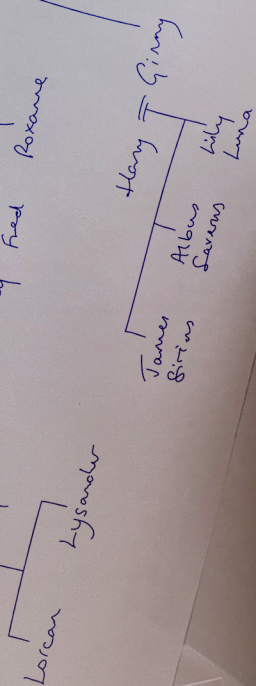 Roxanne
Fred
Harry = Ginny
James
Sirius
Albus
Severus
Lily
Luna
Lorcan
Lysander